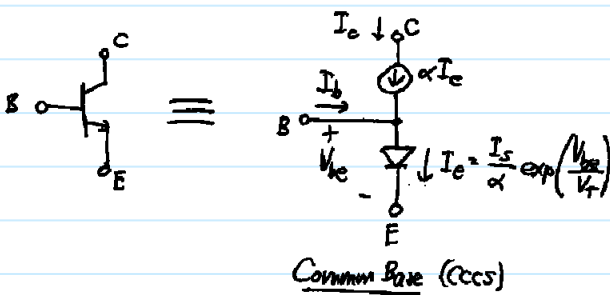 C
B
E
≡
I_c ↓ C
αI_e
I_b →
B
+
V_be
-
↓ I_e = I_s/α exp(V_be/V_T)
E
Common Base (CCCS)